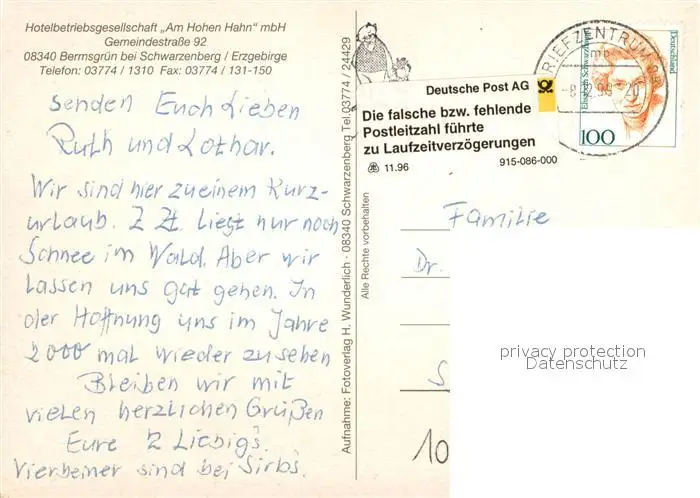 Hotelbetriebsgesellschaft „Am Hohen Hahn" mbH
Gemeindestraße 92
08340 Bermsgrün bei Schwarzenberg / Erzgebirge
Telefon: 03774 / 1310 Fax: 03774 / 131-150
senden Euch Lieben
Ruth und Lothar.
Wir sind hier zu einem Kurz-
urlaub. Z Zt. liegt nur noch
Schnee im Wald. Aber wir
lassen uns gut gehen. In
der Hoffnung uns im Jahre
2000 mal wieder zu sehen
Bleiben wir mit
vielen herzlichen Grüßen
Eure 2 Liebig's
Vierbeiner sind bei Sirbs.
Aufnahme: Fotoverlag H. Wunderlich · 08340 Schwarzenberg Tel. 03774 / 24429
Alle Rechte vorbehalten
Deutsche Post AG
Die falsche bzw. fehlende
Postleitzahl führte
zu Laufzeitverzögerungen
11.96 915-086-000
BRIEFZENTRUM
Elisabeth Schwarzhaupt
Deutschland
100
Familie
Dr.
S
10
privacy protection
Datenschutz